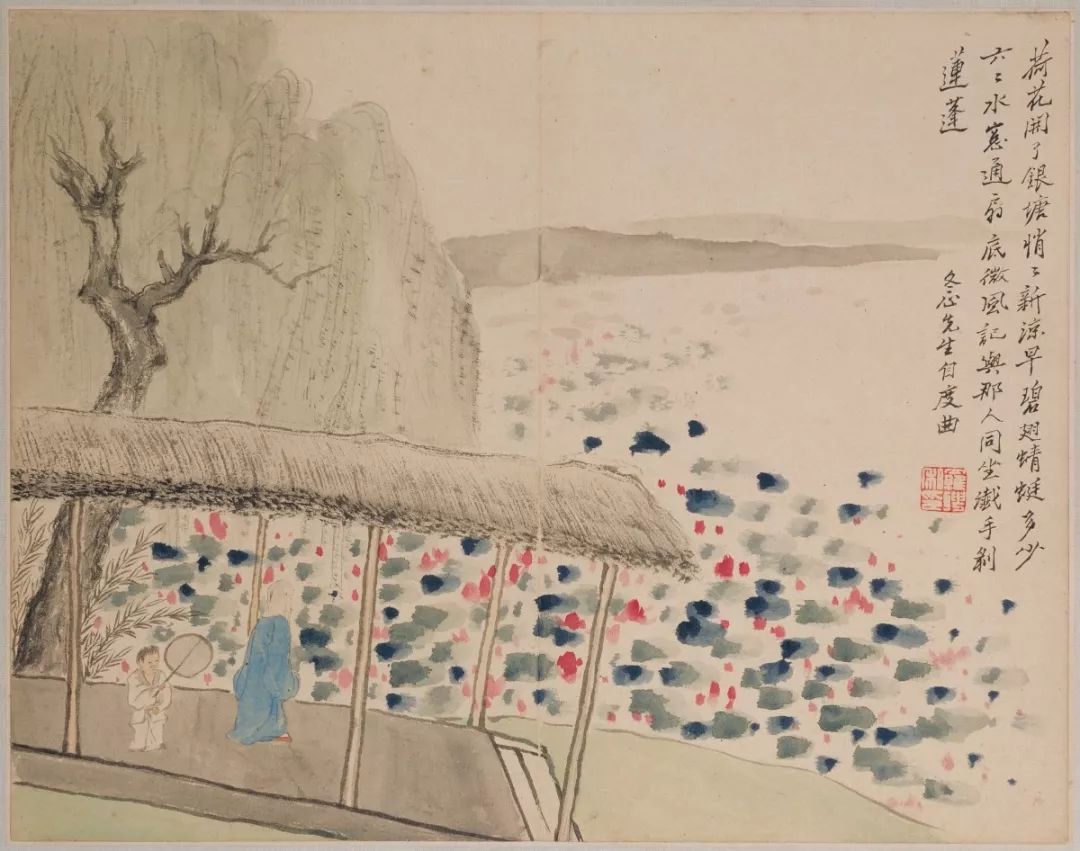 荷花開了銀塘悄〻新涼早碧翅蜻蜓多少
六〻水窓通扇底微風記與那人同坐纖手剝
蓮蓬
冬心先生自度曲